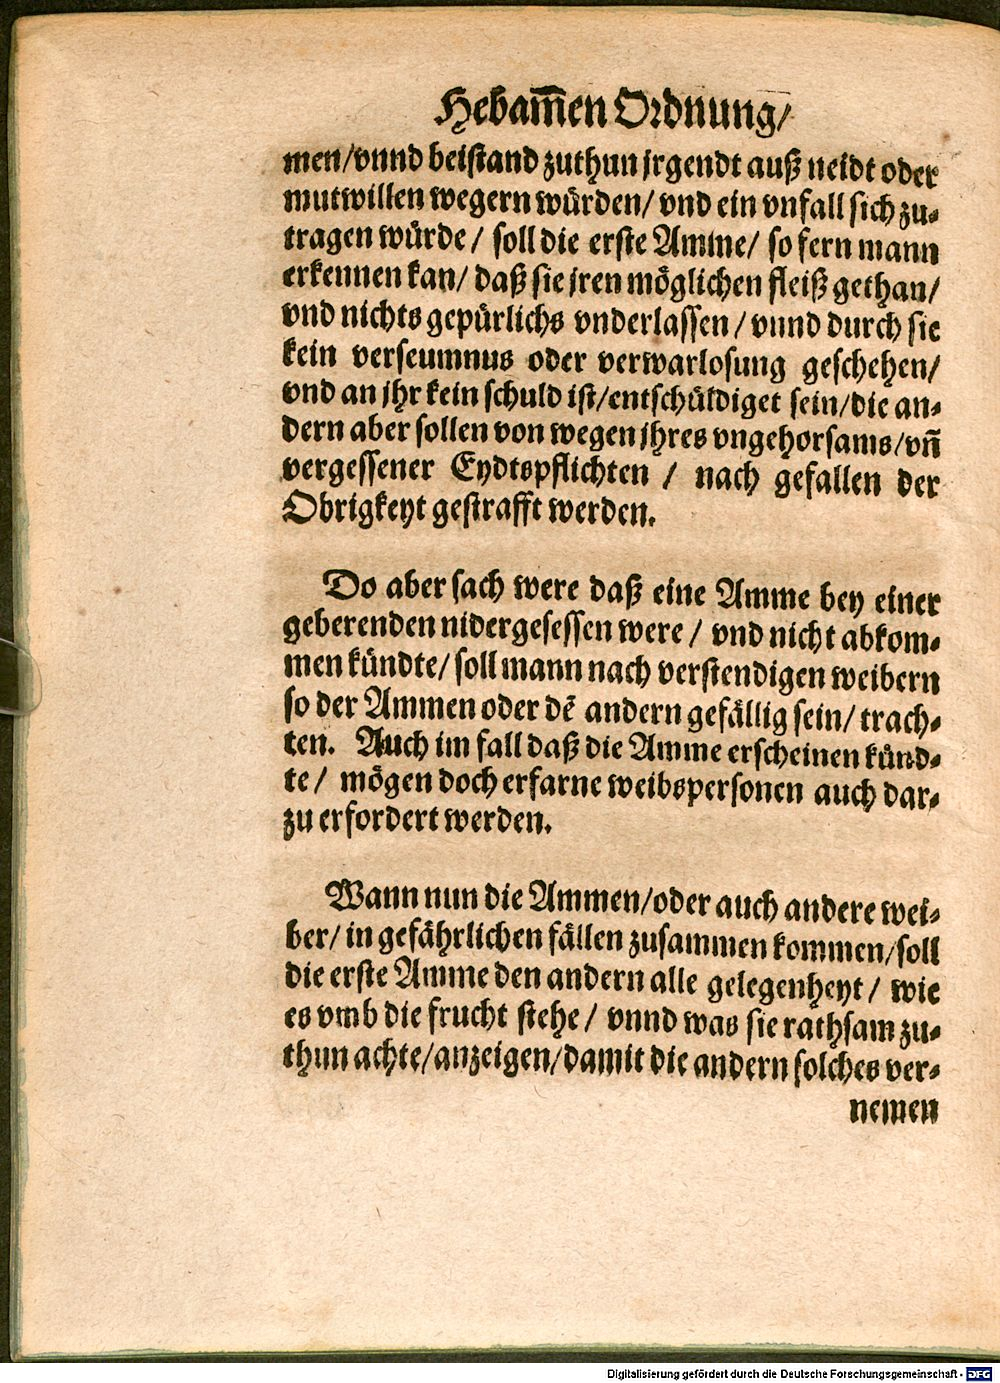 Hebam̅en Ordnung/
men/vnnd beistand zuthun jrgendt auß neidt oder
mutwillen wegern würden/ vnd ein vnfall sich zu-
tragen würde/ soll die erste Amme/ so fern mann
erkennen kan/ daß sie jren möglichen fleiß gethan/
vnd nichts gepürlichs vnderlassen/ vnnd durch sie
kein verseumnus oder verwarlosung geschehen/
vnd an jhr kein schuld ist/entschüldiget sein/die an-
dern aber sollen von wegen jhres vngehorsams/vn̅
vergessener Eydtspflichten / nach gefallen der
Obrigkeyt gestrafft werden.
Do aber sach were daß eine Amme bey einer
geberenden nidergesessen were / vnd nicht abkom-
men kündte/ soll mann nach verstendigen weibern
so der Ammen oder de̅ andern gefällig sein/ trach-
ten. Auch im fall daß die Amme erscheinen künd-
te/ mögen doch erfarne weibspersonen auch dar-
zu erfordert werden.
Wann nun die Ammen/oder auch andere wei-
ber/ in gefährlichen fällen zusammen kommen/soll
die erste Amme den andern alle gelegenheyt/ wie
es vmb die frucht stehe/ vnnd was sie rathsam zu-
thun achte/anzeigen/damit die andern solches ver-
nemen
Digitalisierung gefördert durch die Deutsche Forschungsgemeinschaft - DFG